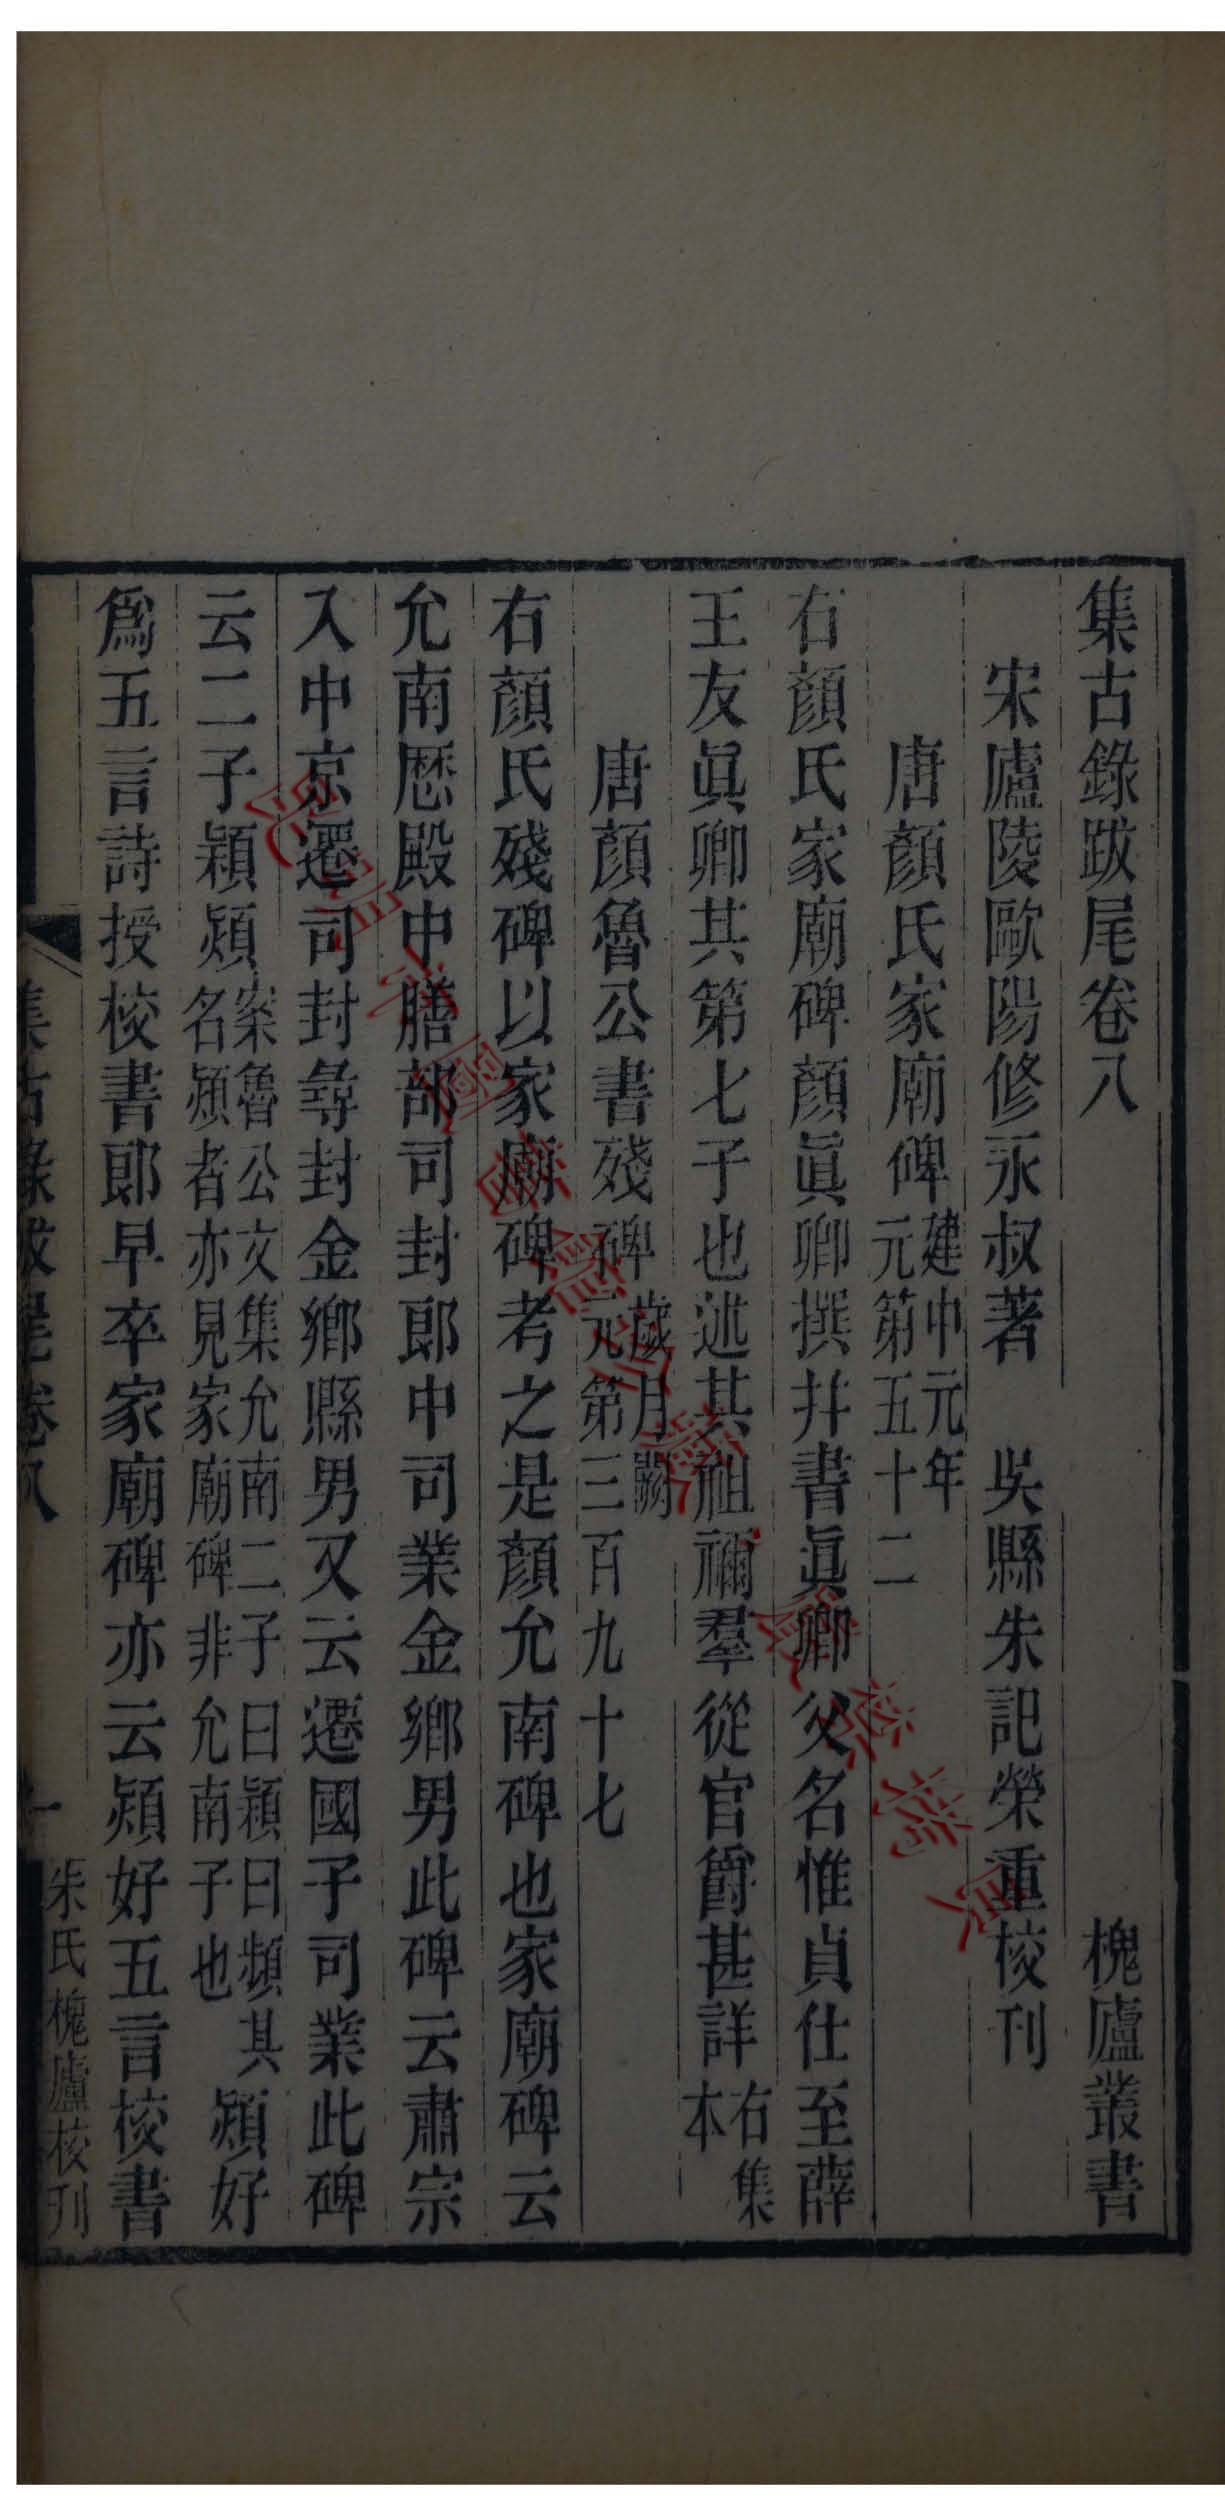 集古錄跋尾卷八　槐廬叢書
宋廬陵歐陽修永叔著　吳縣朱記榮重校刊
唐顏氏家廟碑建中元年元第五十二
右顏氏家廟碑顏眞卿撰幷書眞卿父名惟貞仕至薛
王友眞卿其第七子也述其祖禰羣從官爵甚詳右集本
唐顏魯公書殘碑歲月闕元第三百九十七
右顏氏殘碑以家廟碑考之是顏允南碑也家廟碑云
允南歷殿中膳部司封郎中司業金鄉男此碑云肅宗
入中京遷司封尋封金鄉縣男又云遷國子司業此碑
云二子穎熲案魯公文集允南二子曰穎曰頍其名熲者亦見家廟碑非允南子也熲好
爲五言詩授校書郎早卒家廟碑亦云熲好五言校書
集古錄跋尾卷八
一
朱氏槐廬校刊